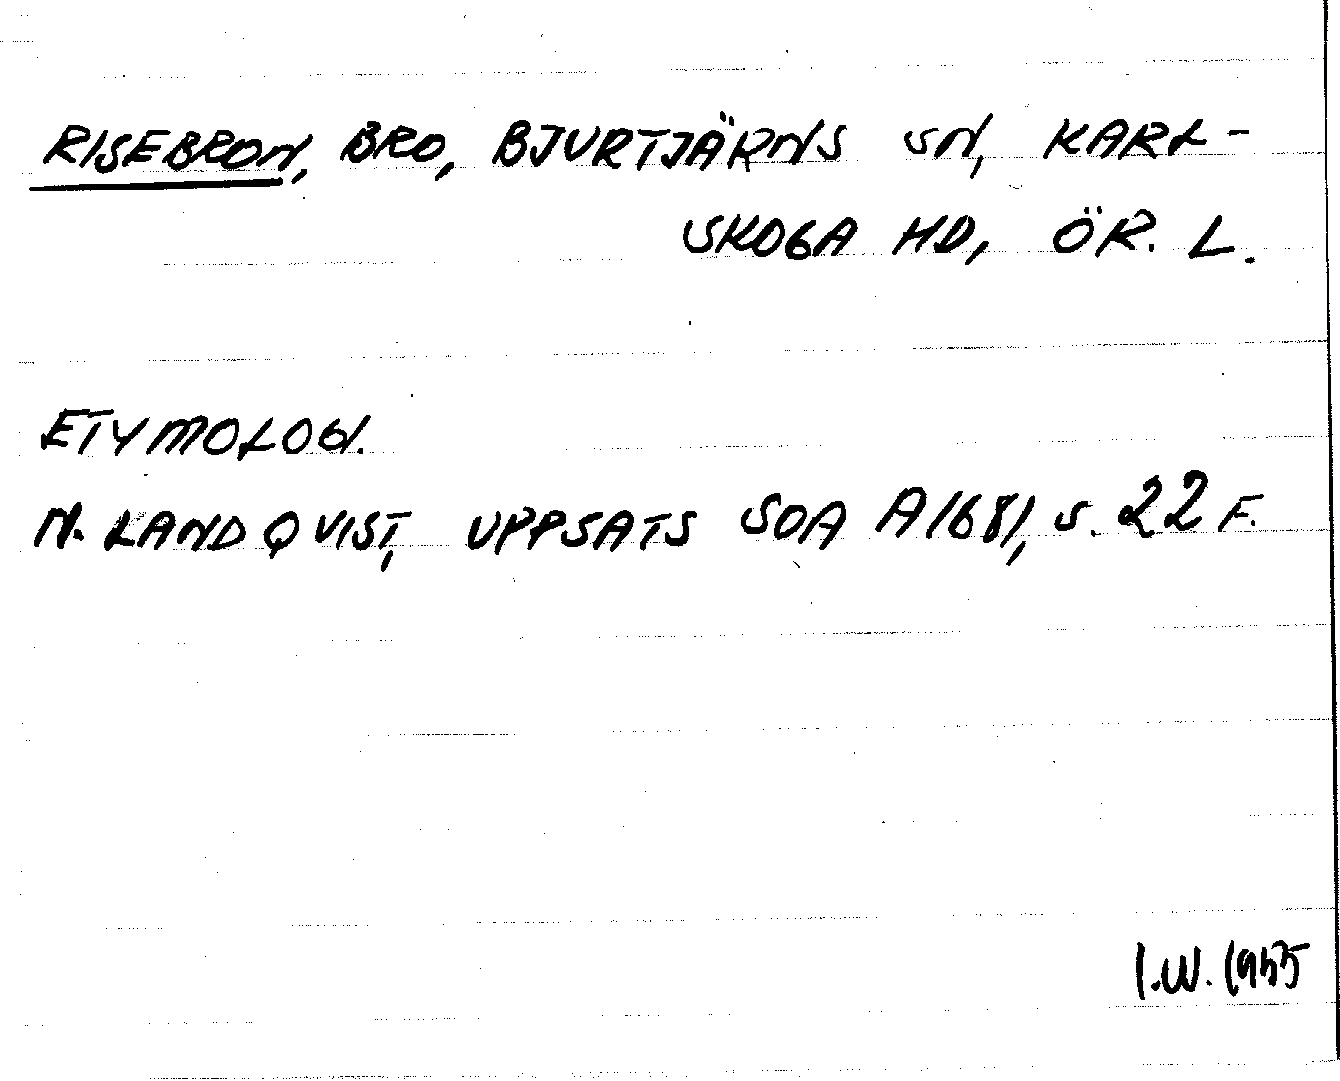 RISEBRON, BRO, BJURTJÄRNS SN, KARL-
SKOGA HD, ÖR. L.
ETYMOLOGI.
N. LANDQVIST, UPPSATS SOA A1681, S. 22 F.
I.W. 1955